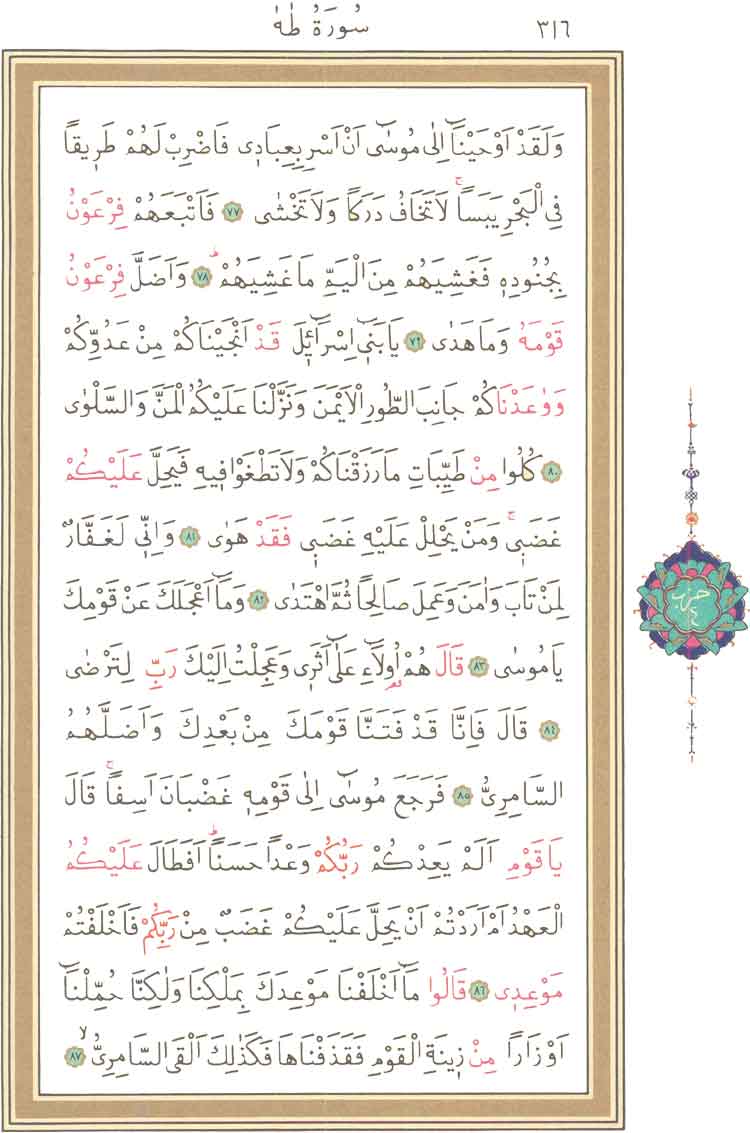 سُورَةُ طٰهٰ ٣١٦
وَلَقَدْ اَوْحَيْنَٓا اِلٰى مُوسٰٓى اَنْ اَسْرِ بِعِبَادٖى فَاضْرِبْ لَهُمْ طَرٖيقاً
فِى الْبَحْرِ يَبَساًۚ لَا تَخَافُ دَرَكاً وَلَا تَخْشٰى ٧٧ فَاَتْبَعَهُمْ فِرْعَوْنُ
بِجُنُودِهٖ فَغَشِيَهُمْ مِنَ الْيَمِّ مَا غَشِيَهُمْؕ ٧٨ وَاَضَلَّ فِرْعَوْنُ
قَوْمَهُ وَمَا هَدٰى ٧٩ يَا بَنٖٓى اِسْرَٓائٖلَ قَدْ اَنْجَيْنَاكُمْ مِنْ عَدُوِّكُمْ
وَوٰعَدْنَاكُمْ جَانِبَ الطُّورِ الْاَيْمَنَ وَنَزَّلْنَا عَلَيْكُمُ الْمَنَّ وَالسَّلْوٰى
٨٠ كُلُوا مِنْ طَيِّبَاتِ مَا رَزَقْنَاكُمْ وَلَا تَطْغَوْا فٖيهِ فَيَحِلَّ عَلَيْكُمْ
غَضَبٖىۚ وَمَنْ يَحْلِلْ عَلَيْهِ غَضَبٖى فَقَدْ هَوٰى ٨١ وَاِنّٖى لَغَفَّارٌ
لِمَنْ تَابَ وَاٰمَنَ وَعَمِلَ صَالِحاً ثُمَّ اهْتَدٰى ٨٢ وَمَٓا اَعْجَلَكَ عَنْ قَوْمِكَ
يَا مُوسٰى ٨٣ قَالَ هُمْ اُو۬لَٓاءِ عَلٰٓى اَثَرٖى وَعَجِلْتُ اِلَيْكَ رَبِّ لِتَرْضٰى
٨٤ قَالَ فَاِنَّا قَدْ فَتَنَّا قَوْمَكَ مِنْ بَعْدِكَ وَاَضَلَّهُمُ
السَّامِرِىُّ ٨٥ فَرَجَعَ مُوسٰٓى اِلٰى قَوْمِهٖ غَضْبَانَ اَسِفاًۚ قَالَ
يَا قَوْمِ اَلَمْ يَعِدْكُمْ رَبُّكُمْ وَعْداً حَسَناًؕ اَفَطَالَ عَلَيْكُمُ
الْعَهْدُ اَمْ اَرَدْتُمْ اَنْ يَحِلَّ عَلَيْكُمْ غَضَبٌ مِنْ رَبِّكُمْ فَاَخْلَفْتُمْ
مَوْعِدٖى ٨٦ قَالُوا مَٓا اَخْلَفْنَا مَوْعِدَكَ بِمَلْكِنَا وَلٰكِنَّا حُمِّلْنَٓا
اَوْزَاراً مِنْ زٖينَةِ الْقَوْمِ فَقَذَفْنَاهَا فَكَذٰلِكَ اَلْقَى السَّامِرِىُّۙ ٨٧
حزب
٤